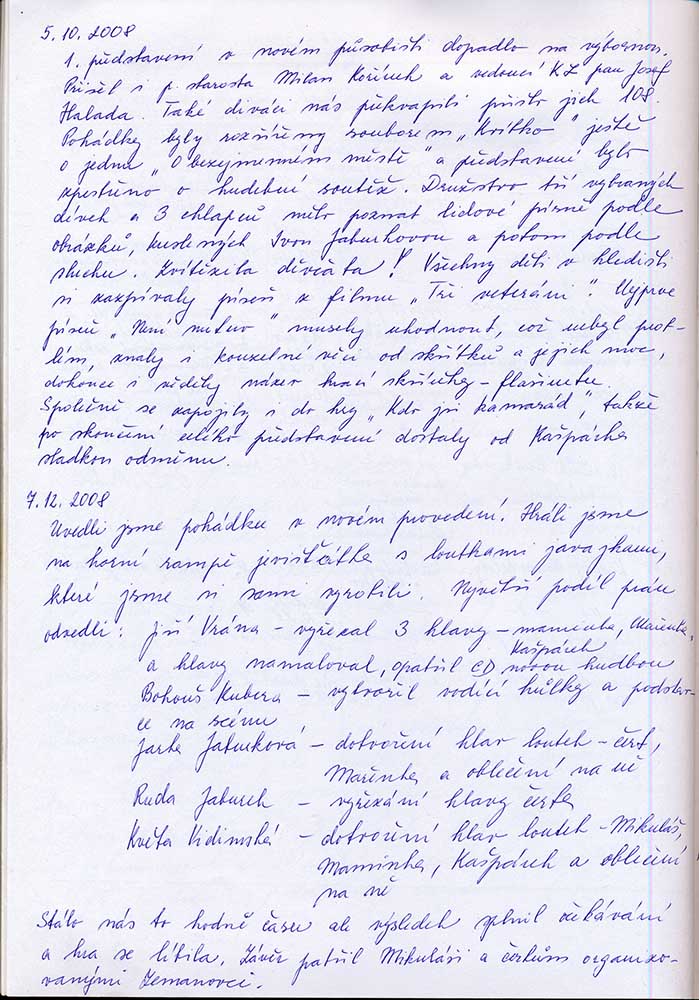 5.10.2008
1. představení v novém působišti dopadlo na výbornou.
Přišel i p. starosta Milan Kořínek a vedoucí KZ pan Josef
Halada. Také diváci nás překvapili přišlo jich 108.
Pohádky byly rozšířeny souborem „Kvítko" ještě
o jednu „O bezejmenném městě" a představení bylo
zpestřeno o hudební soutěž. Družstvo tří vybraných
dívek a 3 chlapců mělo poznat lidové písně podle
obrázků, kreslených Ivou Jaburkovou a potom podle
sluchu. Zvítězila děvčata! Všechny děti v hledišti
si zazpívaly píseň z filmu „Tři veteráni". Nejprve
píseň „Není nutno" musely uhodnout, což nebyl prob-
lém, znaly i kouzelné věci od skřítků a jejich moc,
dokonce i věděly název hrací skříňky – flašinetu.
Společně se zapojily i do hry „Kdo je kamarád", takže
po skončení celého představení dostaly od Kašpárka
sladkou odměnu.
7.12.2008
Uvedli jsme pohádku v novém provedení. Hráli jsme
na horní rampě jevišťátka s loutkami javajkami,
které jsme si sami vyrobili. Největší podíl práce
odvedli: Jiří Vrána – vyřezal 3 hlavy – maminka, Mařenka,
Kašpárek
a hlavy namaloval, opatřil CD novou hudbou
Bohouš Kubera – vytvořil vodící hůlky a podstav-
ce na scénu
Jarka Jaburková – dotvoření hlav loutek – čert,
Mařenka a oblečení na ně
Ruda Jaburek – vyřezání hlavy čerta
Květa Vidimská – dotvoření hlav loutek – Mikuláš,
Maminka, Kašpárek a oblečení
na ně
Stálo nás to hodně času ale výsledek splnil očekávání
a hra se líbila. Závěr patřil Mikuláši a čertům organizo-
vanými Zemanovci.